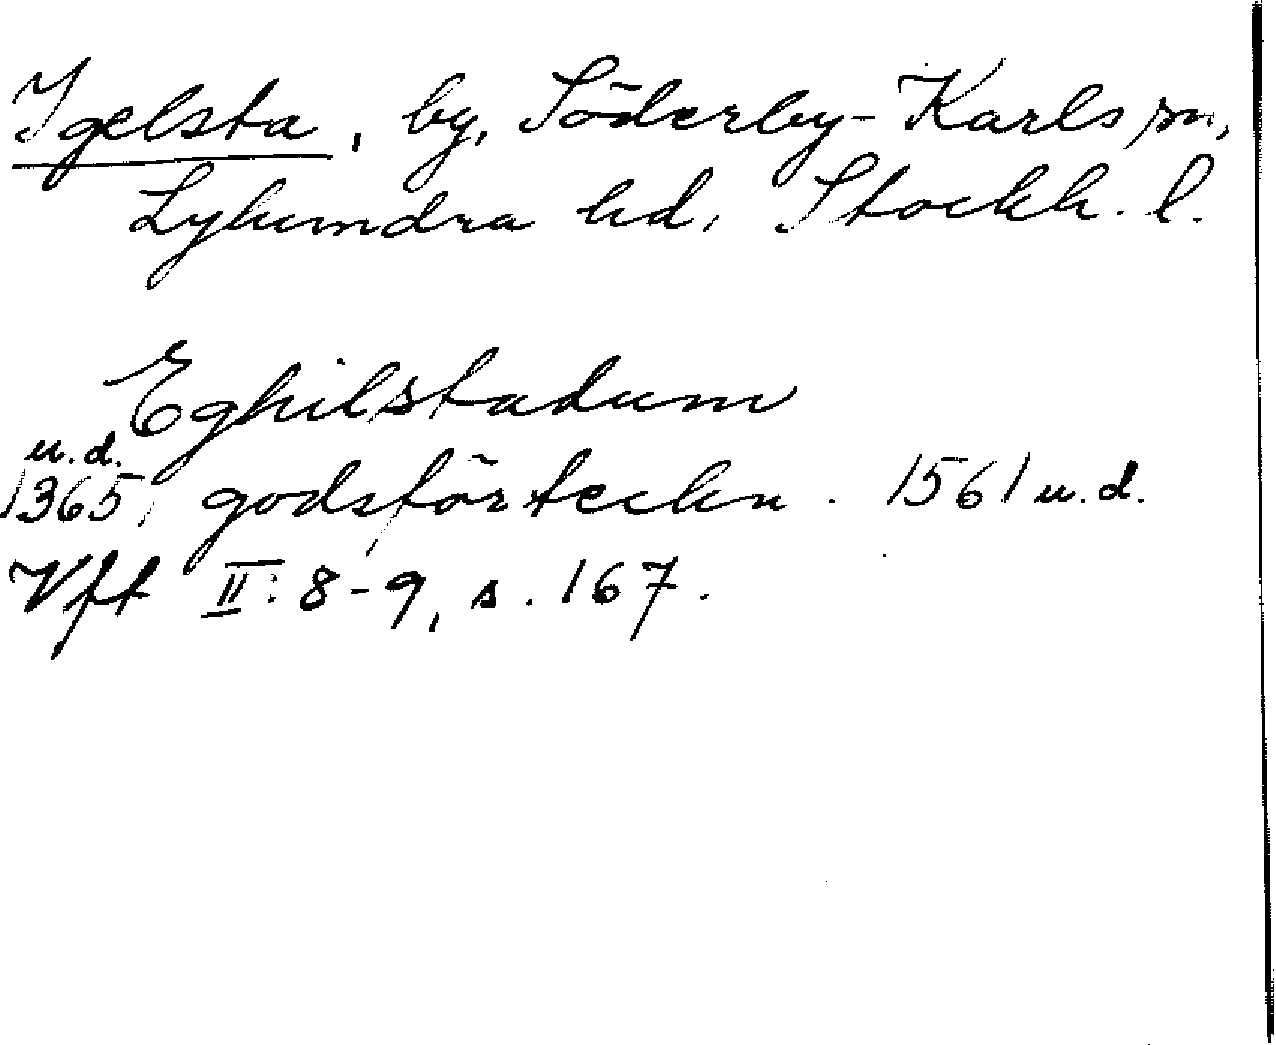 Igelsta, by, Söderby-Karls sn,
Lyhundra hd, Stockh. l.
Eghilstadum
u.d.
1365, godsförteckn. 1561 u.d.
Vft II: 8-9, s. 167.